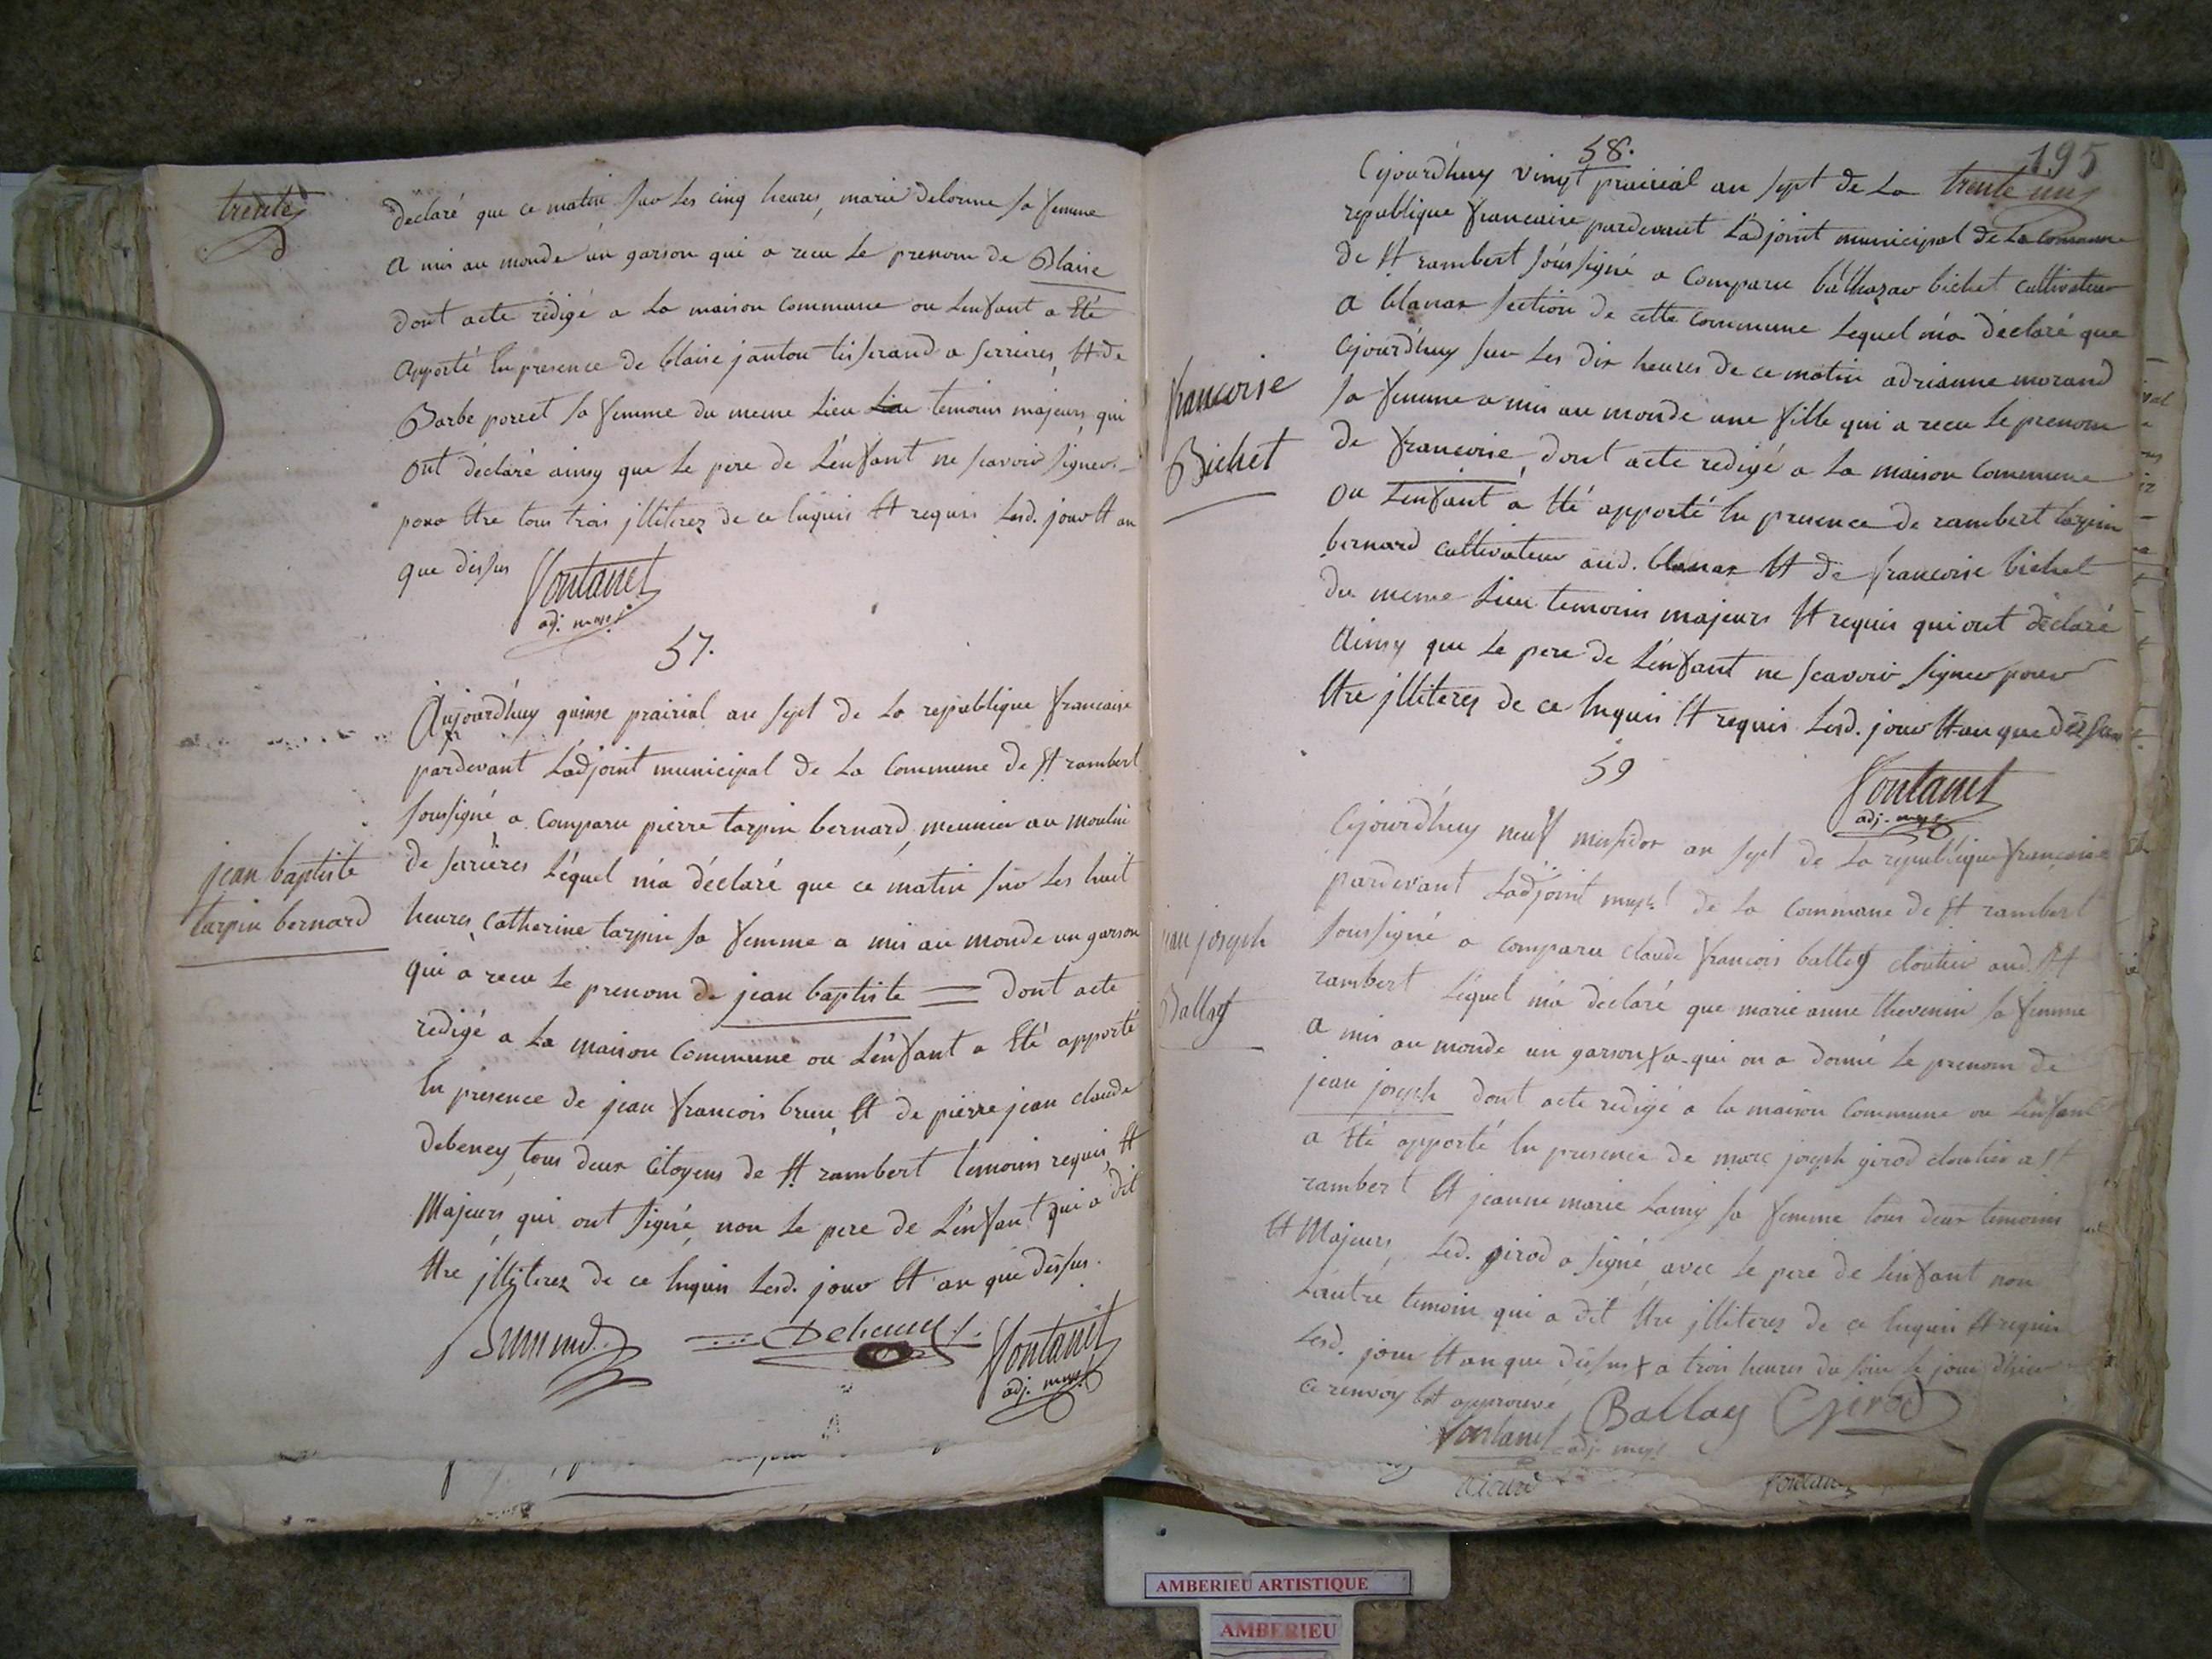 trente
declaré que ce matin sur les cinq heures, marie delorme sa femme
a mis au monde un garson qui a recu le prenom de Blaise
dont acte rédigé a la maison commune ou lenfant a Eté
apporté En presence de blaise jantou tisserand a serrieres, Et de
Barbe porret sa femme du meme lieu temoins majeurs, qui
ont déclaré ainsy que le pere de lenfant ne scavoir signer
pour Etre tous trois jlliterez de ce Enquis Et requis lesd. jour Et an
que dessus
fontanet
adj. mupl
57.
Aujourd'huy quinse prairial an sept de la republique francaise
pardevant Ladjoint municipal de la commune de St rambert
soussigné a comparu pierre tarpin bernard, meunier au moulin
de serrières Lequel m'a déclaré que ce matin sur les huit
jean baptiste
tarpin bernard
heures, catherine tarpin sa femme a mis au monde un garson
qui a recu le prenom de jean baptiste = dont acte
redigé a la maison commune ou L'enfant a Eté apporté
En presence de jean francois brun Et de pierre jean claude
debeney, tous deux Citoyens de St rambert temoins requis, Et
Majeurs, qui ont signé, non le pere de L'enfant qui a dit
Etre jlliterez de ce Enquis lesd. jour Et an que dessus.
Debeney
fontanet
adj. mupl
58.
195
Cejourd'huy vingt prairial an sept de la trente un
republique francaise pardevant Ladjoint municipal de la commune
de St rambert soussigné a comparu balthazar bichet cultivateur
a blanas section de cette commune Lequel m'a déclaré que
cejourd'huy sur les dix heures de ce matin adrianne morand
francoise
Bichet
sa femme a mis au monde une fille qui a recu le prenom
de francoise, dont acte redigé a la maison commune
ou L'enfant a Eté apporté En presence de rambert tarpin
bernard cultivateur aud. blanas Et de francoise bichet
du meme lieu temoins majeurs Et requis qui ont déclaré
ainsy que le pere de L'enfant ne scavoir signer pour
Etre jlliterez de ce Enquis Et requis lesd. jour Et an que dessus
fontanet
adj. mupl
59
Cejourd'huy neuf messidor an sept de la republique francaise
pardevant Ladjoint mupl de la commune de St rambert
jean joseph
Ballay
soussigné a comparu claude francois ballay cloutier aud. St
rambert Lequel m'a déclaré que marie anne thevenin sa femme
a mis au monde un garson + a qui on a donné le prenom de
jean joseph dont acte redigé a la maison commune ou L'enfant
a Eté apporté En presence de marc joseph girod cloutier a St
rambert Et jeanne marie Lamy sa femme tous deux temoins
Et Majeurs, led. girod a signé, avec le pere de L'enfant non
L'autre temoin qui a dit Etre jlliterez de ce Enquis Et requis
lesd. jour Et an que dessus + a trois heures du soir le jour d'hier
ce renvoy Est approuvé
Ballay Girod
fontanet adj. mupl
AMBERIEU ARTISTIQUE
AMBERIEU